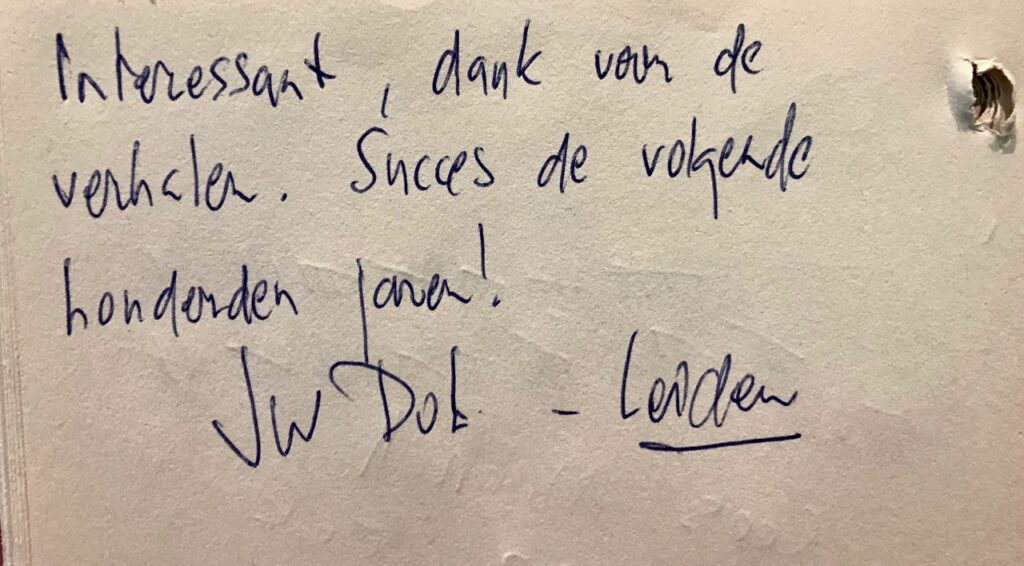 Interessant, dank voor de
verhalen. Succes de volgende
honderden jaren!
JW Dok - Leiden